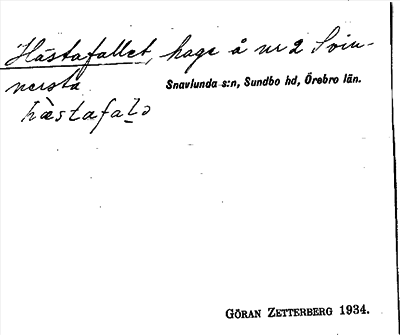 Hästafallet, hage å nr 2 Svin-
nersta
Snavlunda s:n, Sundbo hd, Örebro län.
hæ̀stafaḷə
GÖRAN ZETTERBERG 1934.